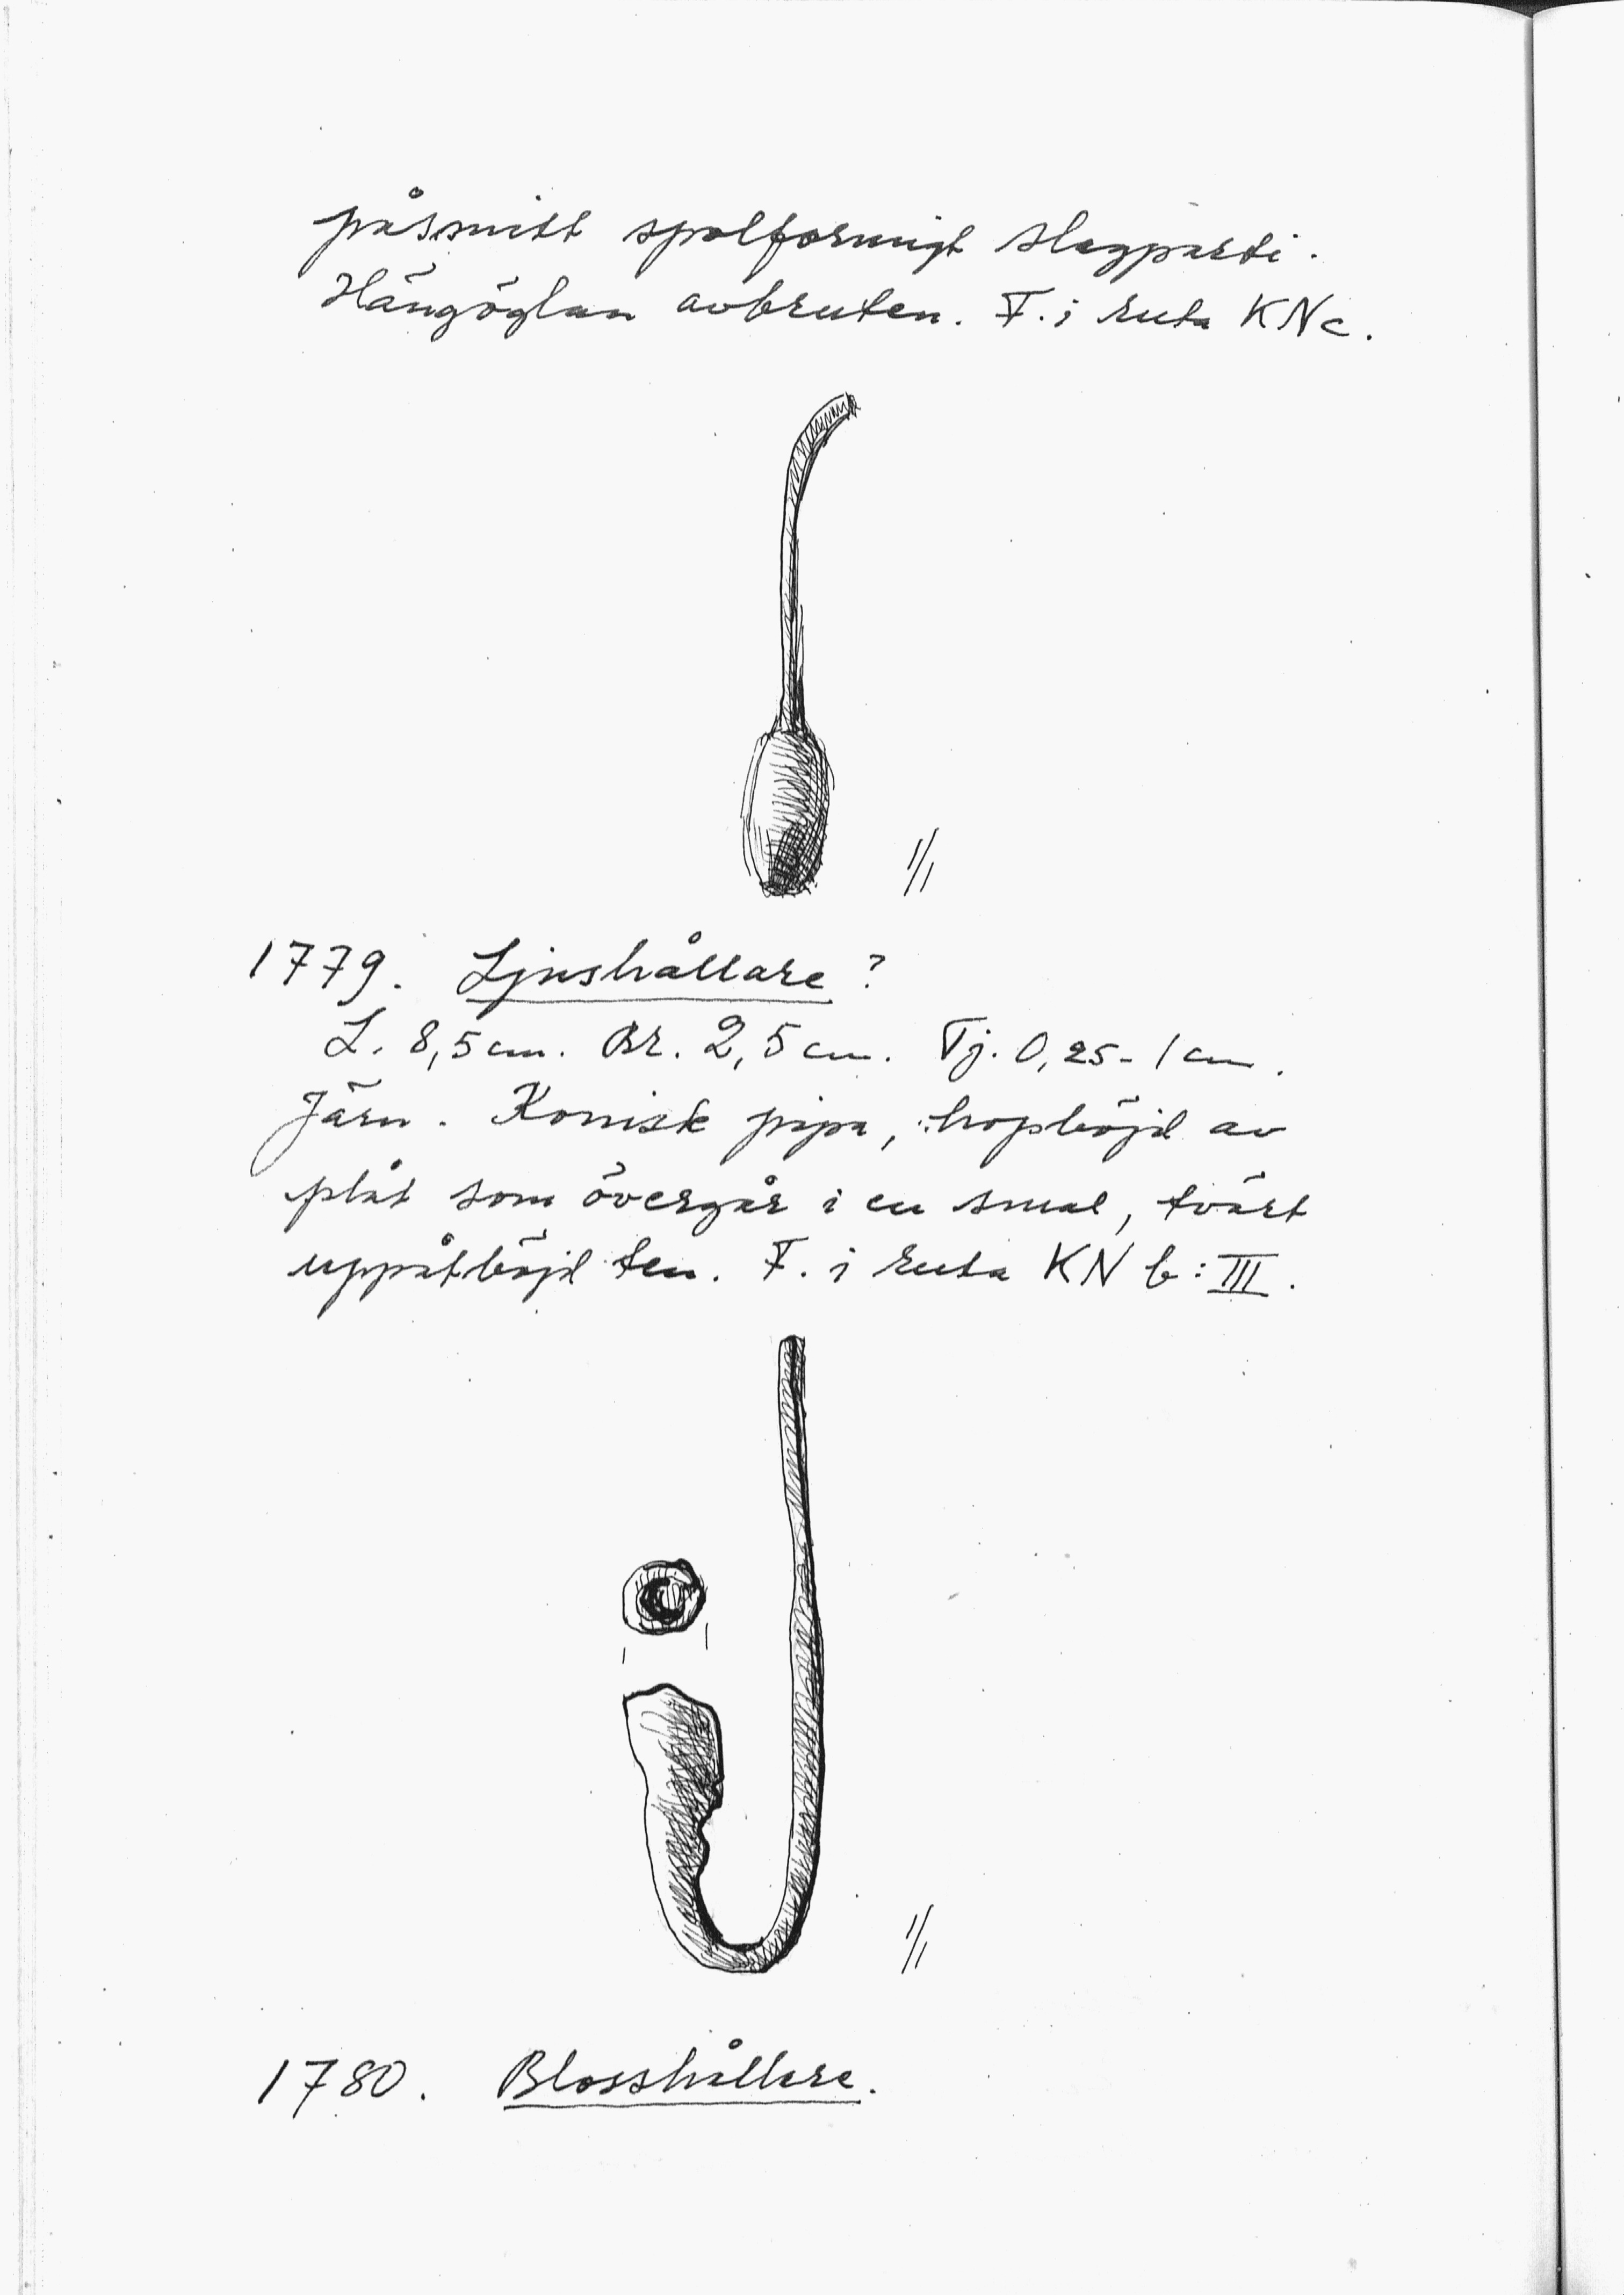 påsmitt spolformigt slagparti.
Hängöglan avbruten. F. i ruta KNc.
1/1
1779. Ljushållare?
L. 8,5 cm. Br. 2,5 cm. Tj. 0,25-1 cm.
Järn. Konisk pipa, hopböjd av
plåt som övergår i en smal, tvärt
uppåtböjd ten. F. i ruta KN b:III.
1/1
1780. Blosshållare.